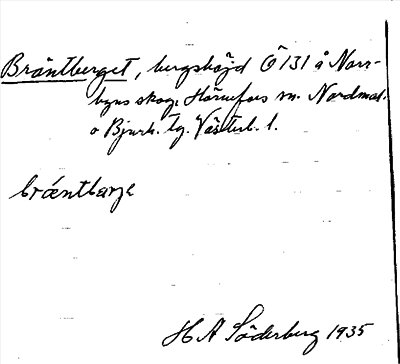 Bräntberget, bergshöjd Ö 131 å Norr-
byns skog, Hörnefors sn. Nordmal.
o Bjurh. tg. Västerb. l.
bræntbarje
H A Söderberg 1935